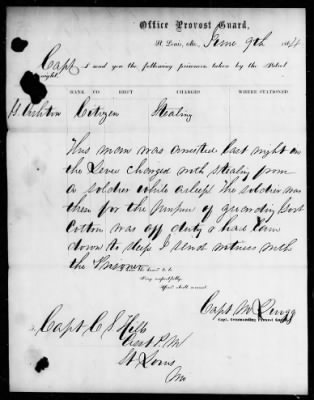 Office Provost Guard,
St. Louis, Mo., June 9th 1864
Capt. I send you the following prisoners taken by the Patrol
night.
NAME RANK CO REG'T CHARGES WHERE STATIONED.
H. Ashton Citizen Stealing
This man was arrested last night on
the Levee charged with stealing from
a soldier while asleep the soldier was
there for the purpose of guarding Govt
Cotton was off duty & had lain
down to sleep I send witness with
the Prisoner
I have the honor to be
Very respectfully
Your obed't servant
Capt
Capt. Commanding Provost Guard
Capt C S Hills
Asst P. M
St Louis
Mo